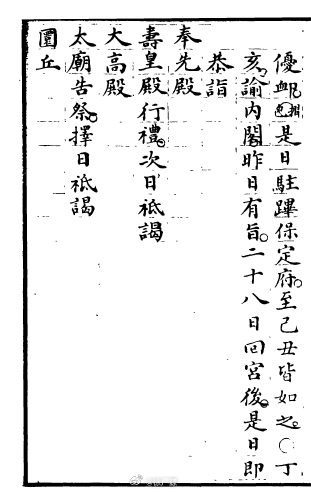 優卹是日駐蹕保定府。至己丑皆如之。○丁
亥。諭內閣。昨日有旨。二十八日回宮後。是日即
恭詣
奉先殿
壽皇殿行禮。次日祗謁
大高殿
太廟告祭。擇日祗謁
圜丘